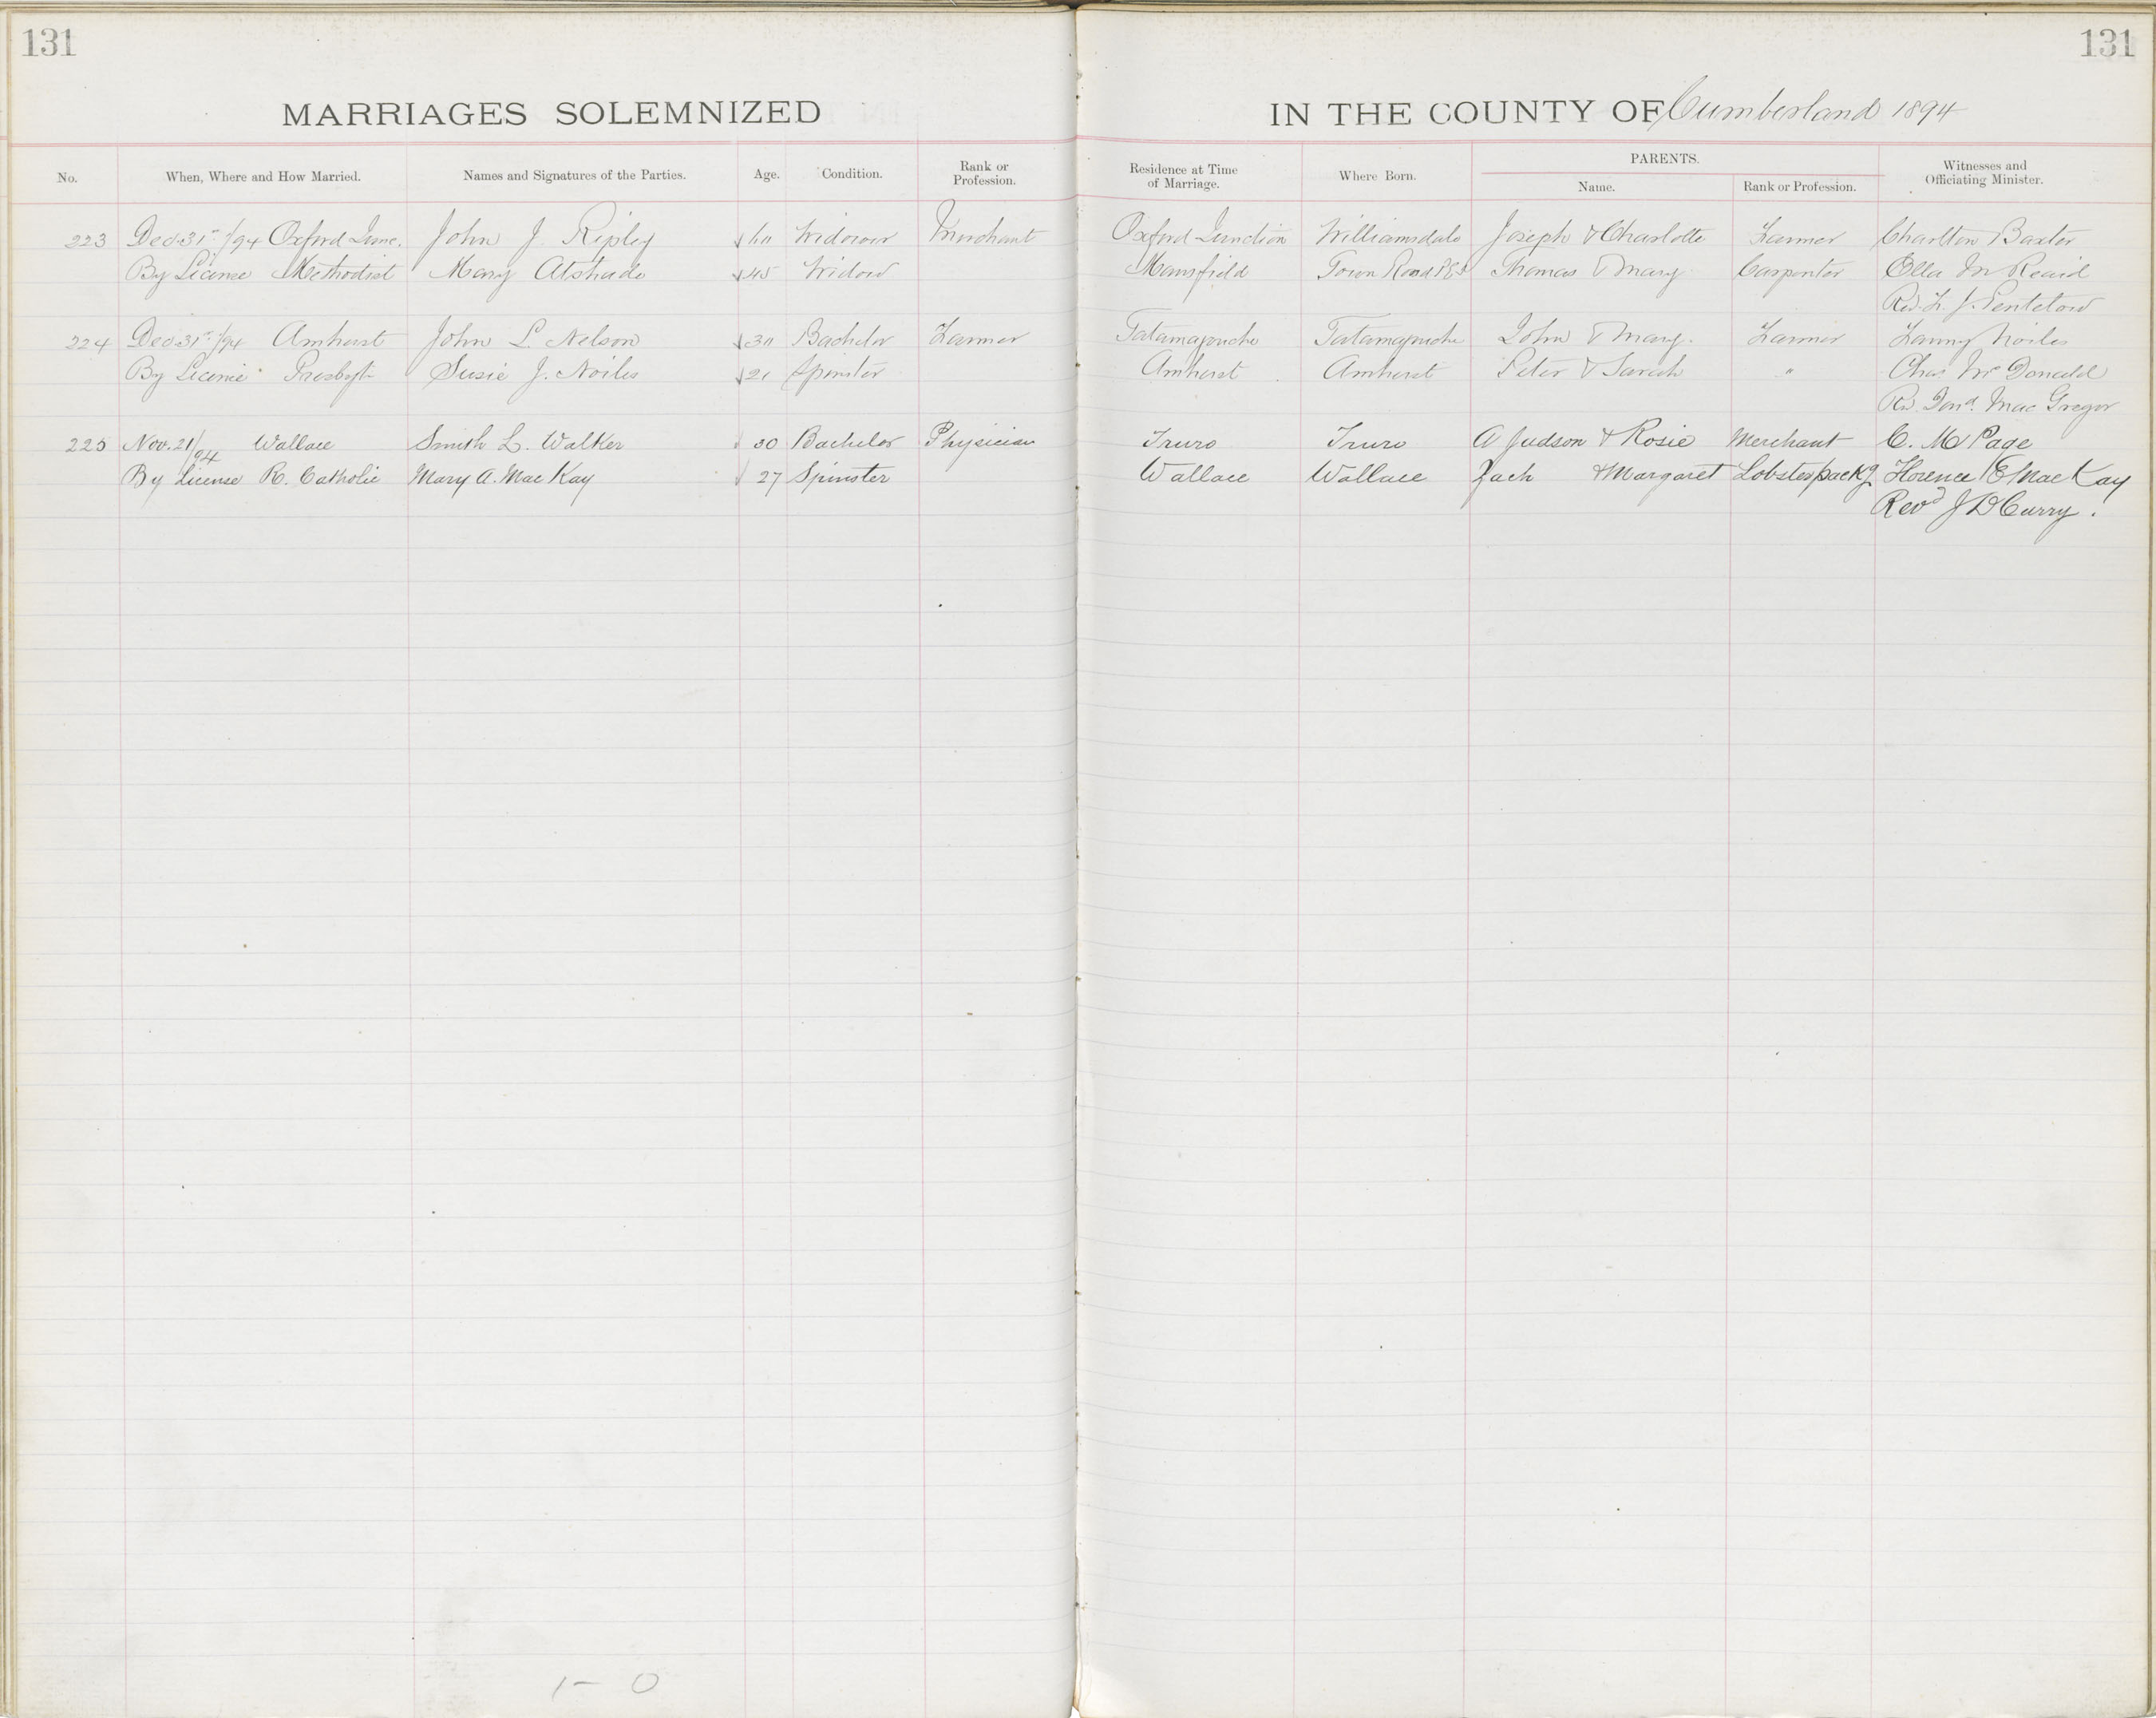 131
131
MARRIAGES SOLEMNIZED IN THE COUNTY OF Cumberland 1894
No. When, Where and How Married. Names and Signatures of the Parties. Age. Condition. Rank or Profession. Residence at Time of Marriage. Where Born. PARENTS. Name. Rank or Profession. Witnesses and Officiating Minister.
223 Dec. 31st /94 Oxford Junc. John J. Ripley 60 Widower Merchant Oxford Junction Williamsdale Joseph & Charlotte Farmer Charlton Baxter
By License Methodist Mary Atshade 45 Widow Mansfield Town Road Thomas & Mary Carpenter Ella M Reaid
Rev. F. J. Pentelow
224 Dec 31st /94 Amherst John L. Nelson 30 Bachelor Farmer Tatamagouche Tatamagouche John & Mary. Farmer Fanny Noiles
By License Presbyt Susie J. Noiles 21 Spinster Amherst Amherst Peter & Sarah " Chas McDonald
Rev. Mac Gregor
225 Nov. 21/94 Wallace Smith L. Walker 30 Bachelor Physician Truro Truro A Judson & Rosie Merchant C. M Page
By License R. Catholic Mary A. Mac Kay 27 Spinster Wallace Wallace Zach & Margaret Lobster packg Florence E Mac Kay
Revd J D Curry.
1- 0